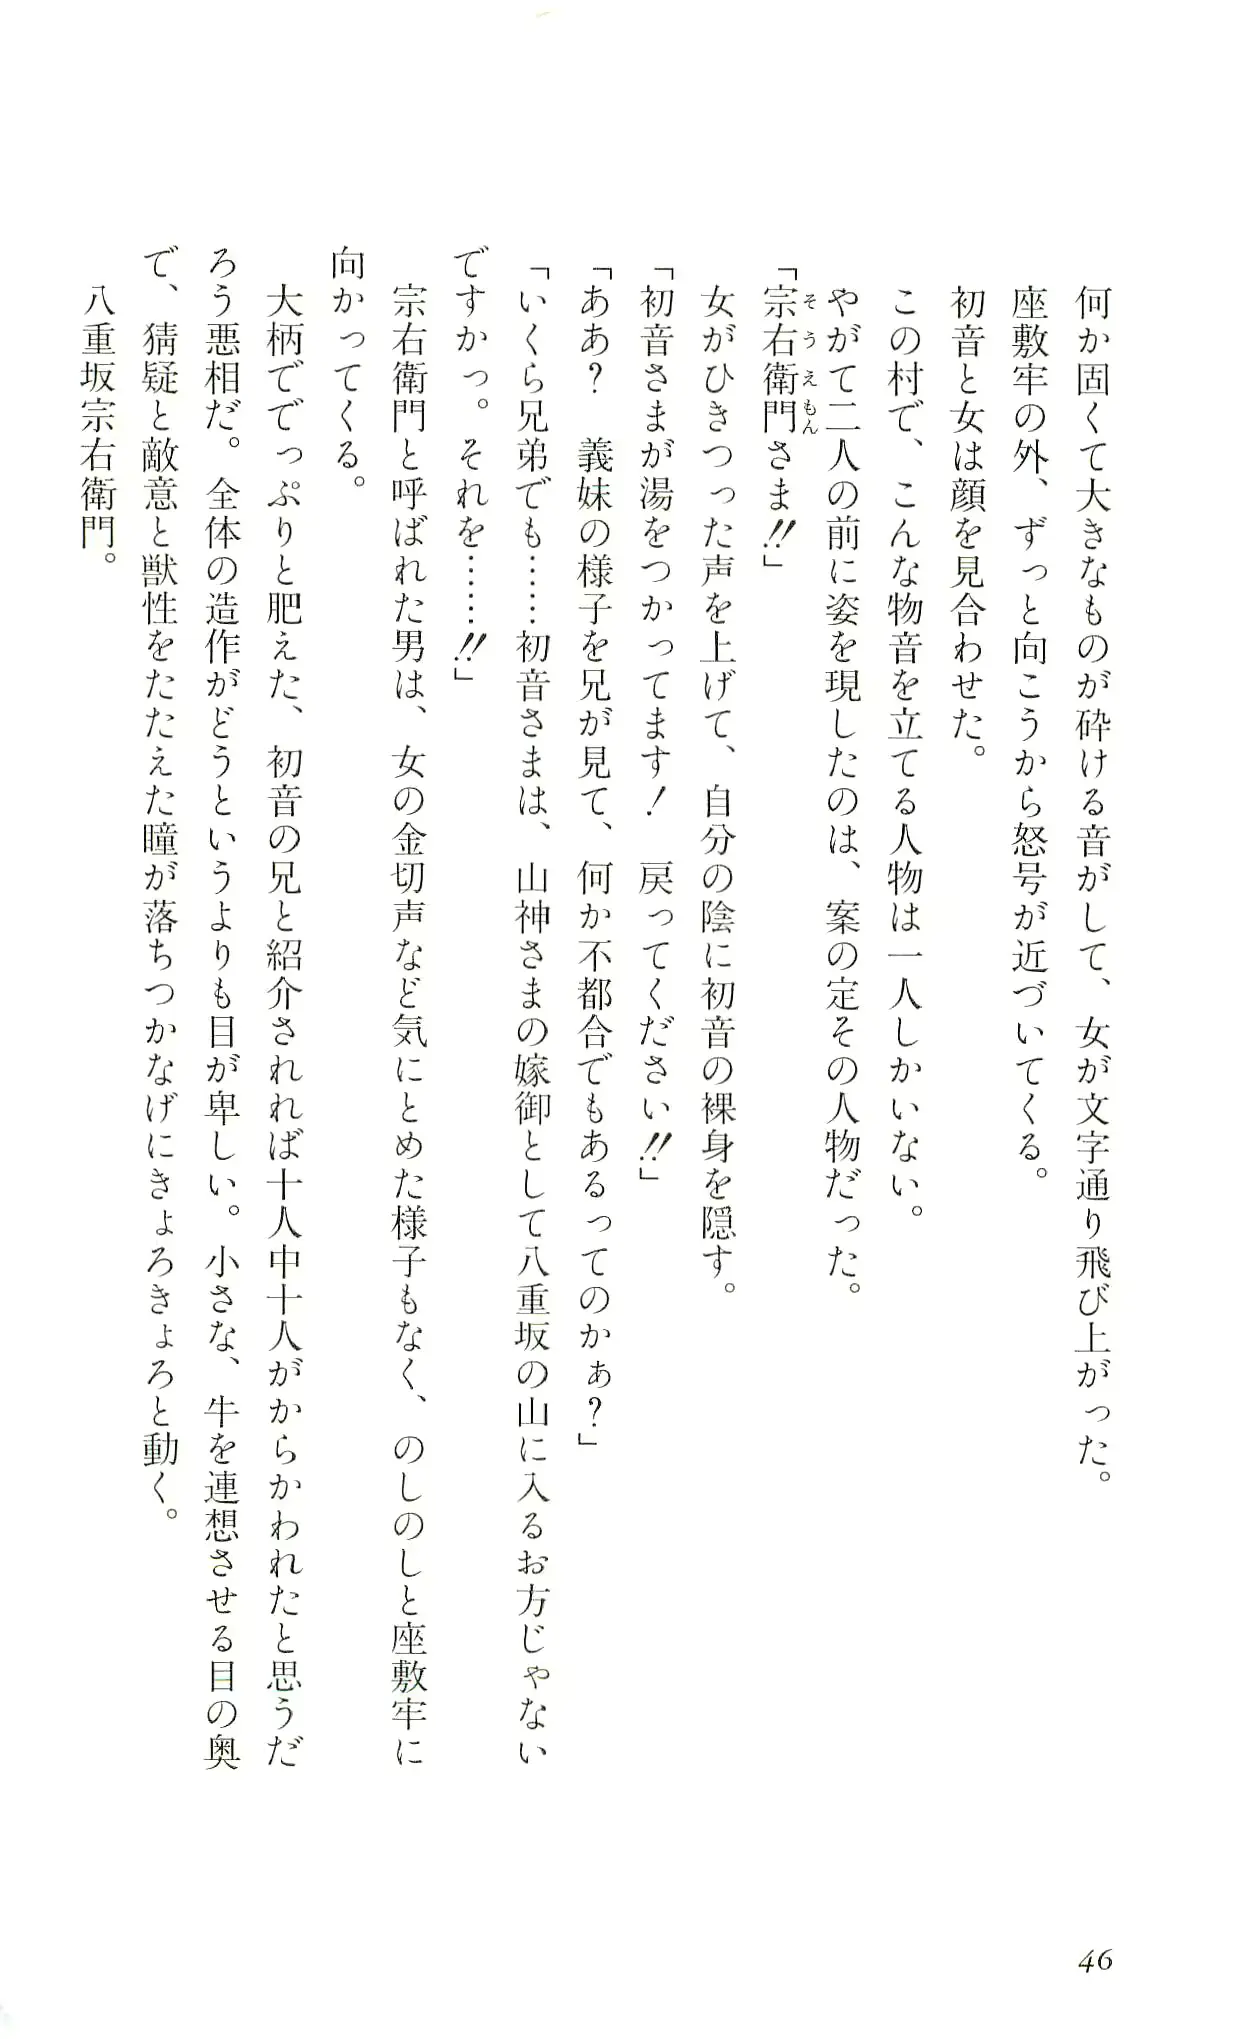 何か固くて大きなものが砕ける音がして、女が文字通り飛び上がった。
座敷牢の外、ずっと向こうから怒号が近づいてくる。
初音と女は顔を見合わせた。
この村で、こんな物音を立てる人物は一人しかいない。
やがて二人の前に姿を現したのは、案の定その人物だった。
「宗右衛門さま‼」
そうえもん
女がひきつった声を上げて、自分の陰に初音の裸身を隠す。
「初音さまが湯をつかってます！　戻ってください‼」
「ああ？　義妹の様子を兄が見て、何か不都合でもあるってのかぁ？」
「いくら兄弟でも……初音さまは、山神さまの嫁御として八重坂の山に入るお方じゃない
ですかっ。それを……‼」
宗右衛門と呼ばれた男は、女の金切声など気にとめた様子もなく、のしのしと座敷牢に
向かってくる。
大柄ででっぷりと肥えた、初音の兄と紹介されれば十人中十人がからかわれたと思うだ
ろう悪相だ。全体の造作がどうというよりも目が卑しい。小さな、牛を連想させる目の奥
で、猜疑と敵意と獣性をたたえた瞳が落ちつかなげにきょろきょろと動く。
八重坂宗右衛門。
46